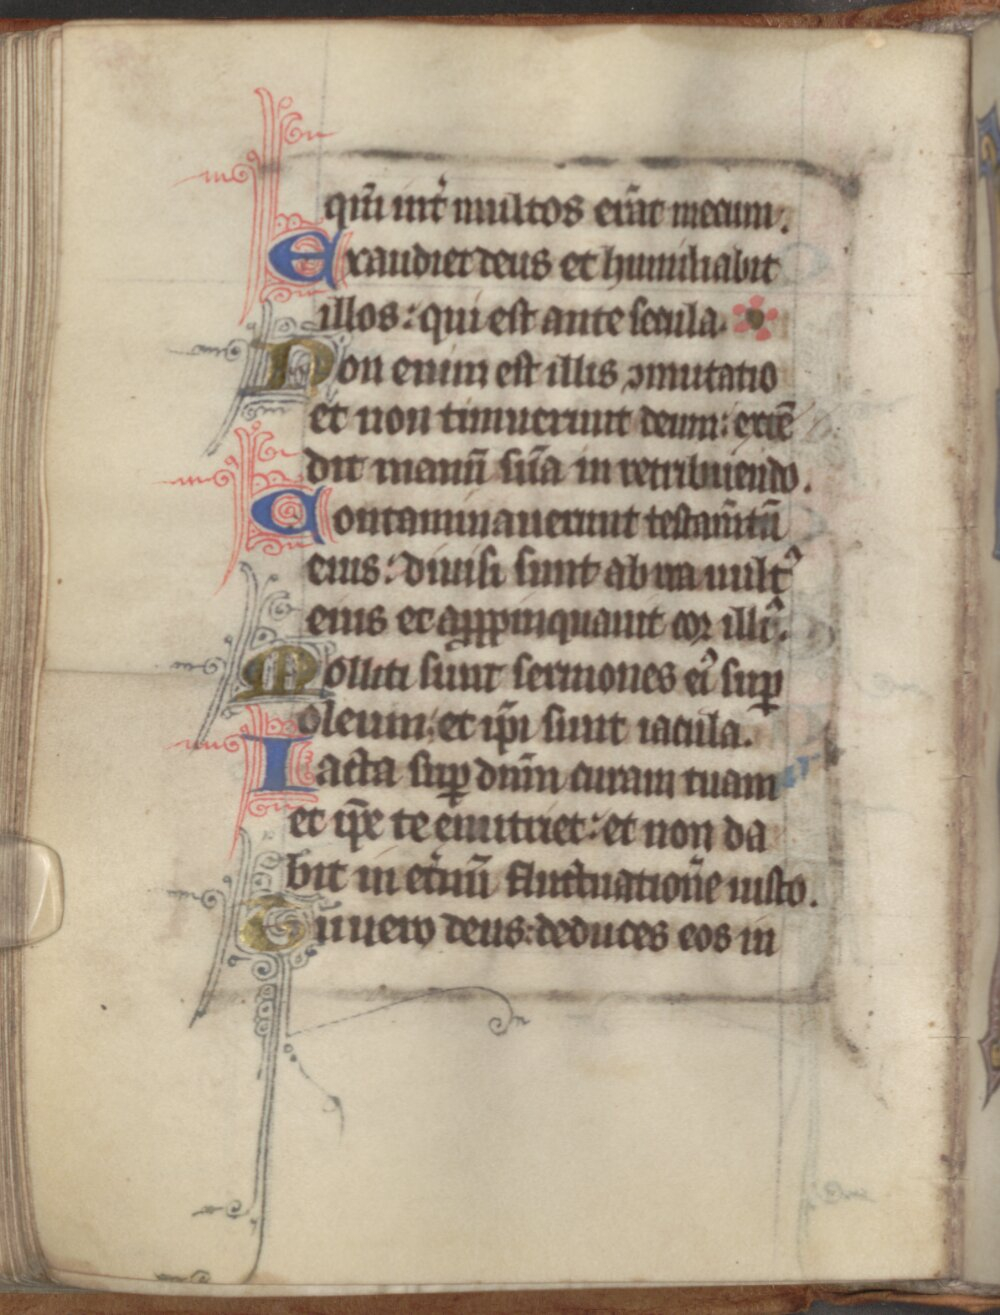 qm̄ int̾ multos erāt mecum.
Exaudiet deus et humiliabit
illos: qui est ante secula.
Non enim est illis ꝯmutatio
et non timuerunt deum: extē
dit manū suā in retribuendo.
Contaminauerunt testam̄tū
eius: diuisi sunt ab ira uult᷒
eius et appropinquauit cor illi᷒.
Molliti sunt sermones ei᷒ sup̄
oleum: et ip̄i sunt iacula.
Iacta sup̄ dn̄m curam tuam
et ip̄e te enutriet: et non da
bit in et̾nū fluctuationē iusto.
Tu uero deus: deduces eos in